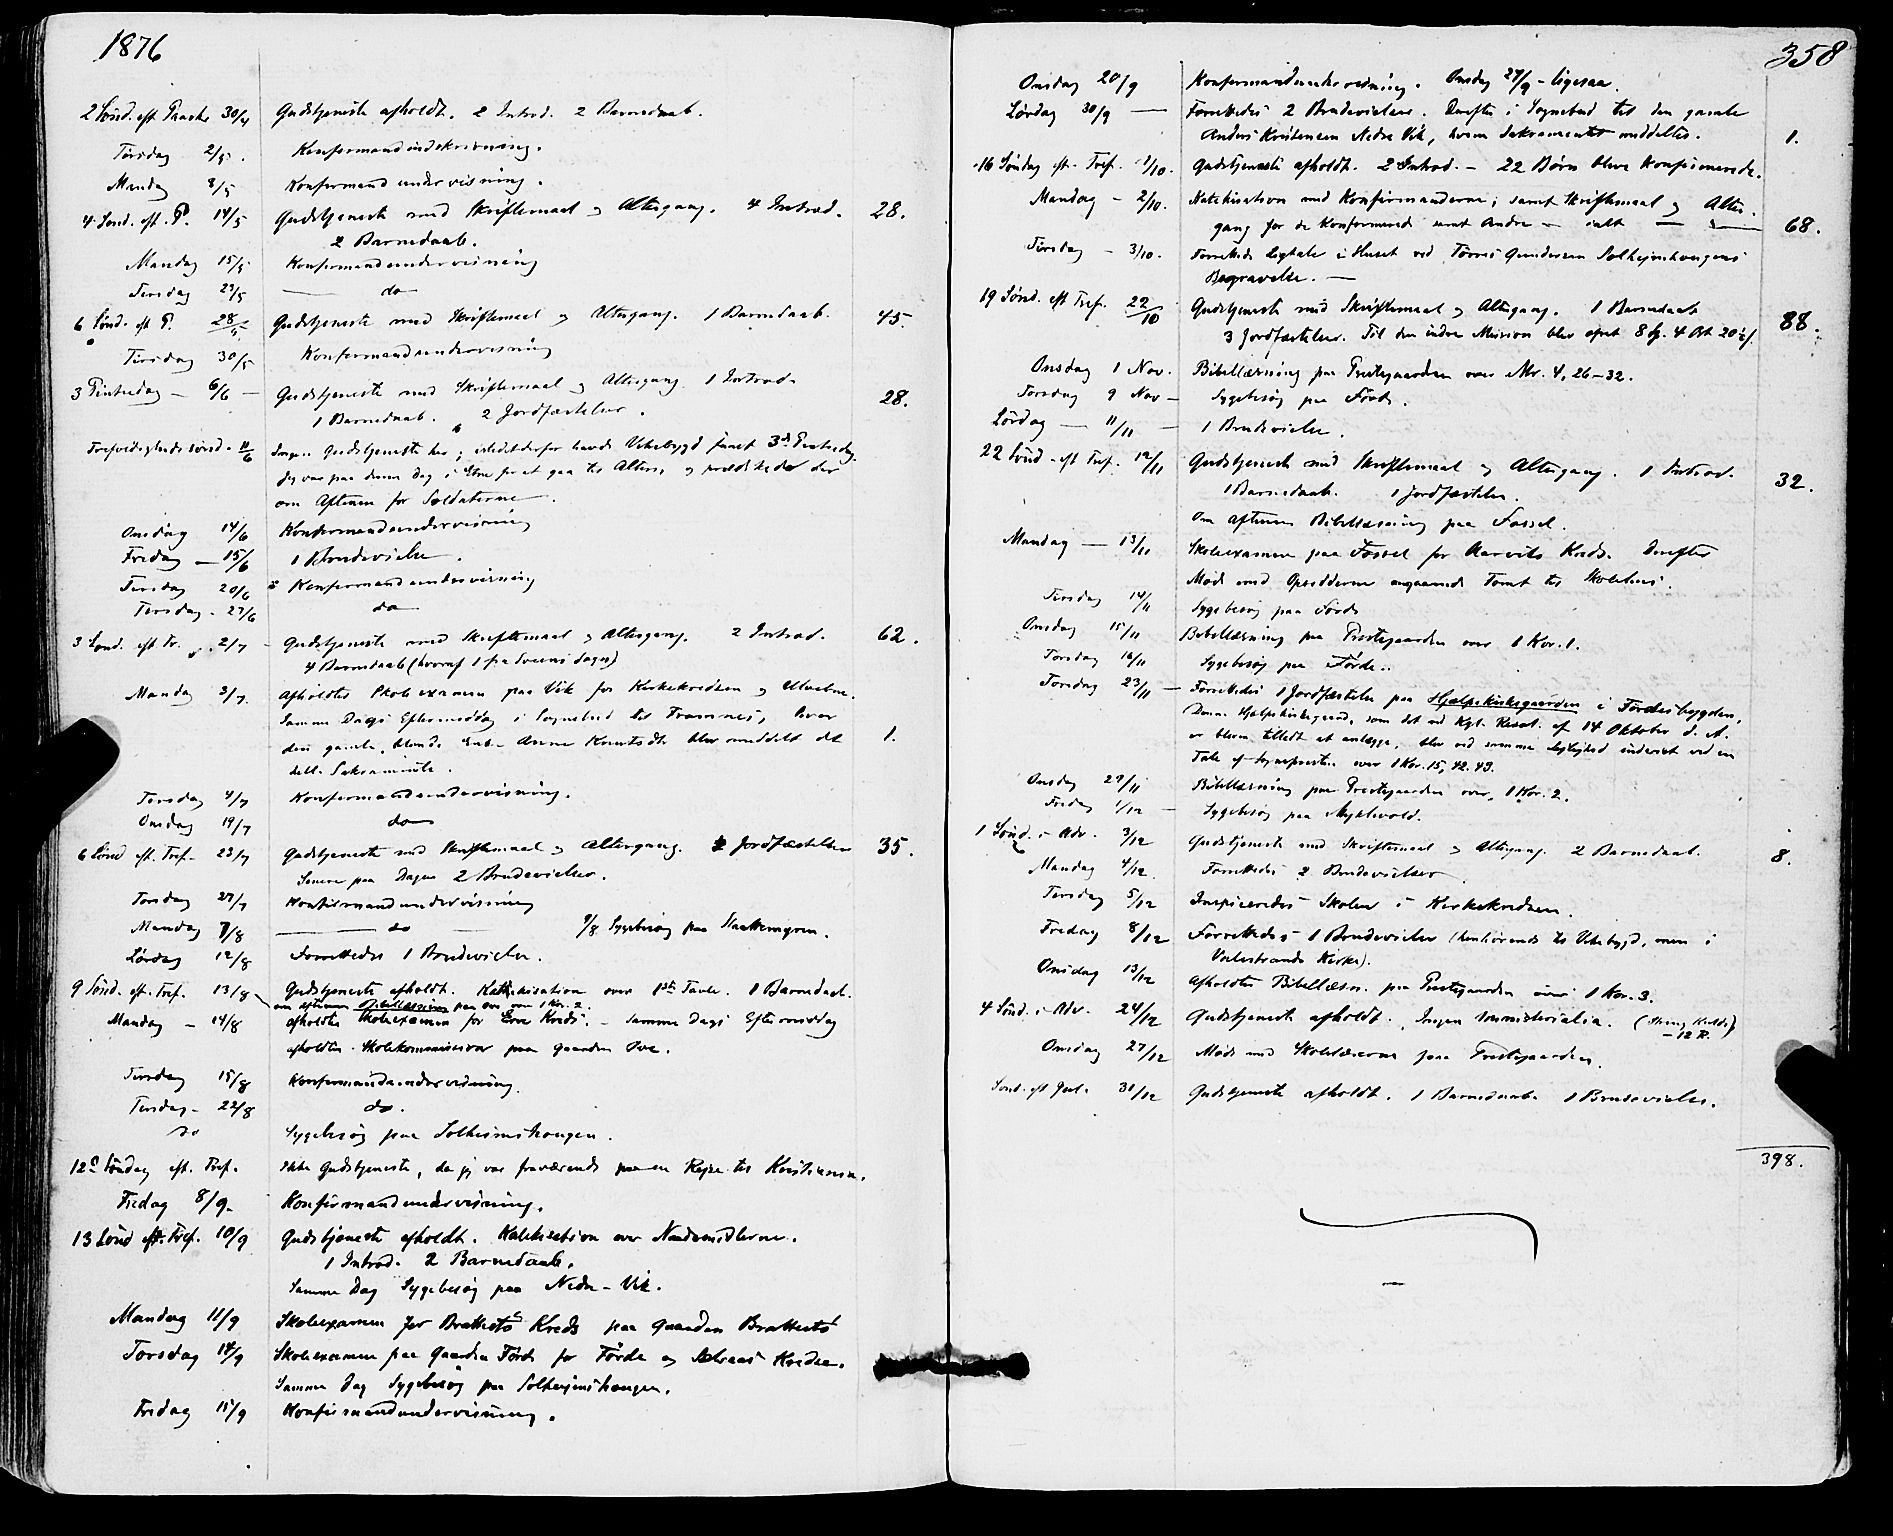 1876
2 Sönd. eft. Paaske 30/4 Gudstjeneste afholdt. 2 Introd. 2 Barnedaab.
Tirsdag 2/5. Konfirmandindskrivning.
Mandag 8/5 Konfirmandundervisning.
4 Sönd. eft. P. 14/5 Gudstjeneste med Skriftemaal og Altergang. 4 Introd. 28.
2 Barnedaab.
Mandag 15/5 Konfirmandundervisning
Tirsdag 23/5 — do —
6 Sönd. eft P. 28/5 Gudstjeneste med Skriftemaal og Altergang. 1 Barnedaab. 45.
Tirsdag 30/5 Konfirmandundervisning
3 Pintsedag — 6/6 — Gudstjeneste med Skriftemaal og Altergang. 1 Introd. 28.
1 Barnedaab. 2 Jordfæstelser.
Trefoldigheds sönd. 11/6 Ingen Gudstjeneste her; istedetderfor havde Vikebygd faaet 3de Pintsedag.
Jeg var paa denne Dag i Etne for at gaa til Alters, og prædikede der
om Aftenen for Soldaterne.
Onsdag 14/6 Konfirmandundervisning
Fredag — 15/6 1 Brudevielse.
Tirsdag 20/6 Konfirmandundervisning
Tirsdag. 27/6 do
3 Sönd. eft Tr. 2/7 Gudstjeneste med Skriftemaal og Altergang. 2 Introd. 62.
4 Barnedaab (hvoraf 1 fra Sveens Sogn)
Mandag 3/7. Afholdtes Skoleexamen paa Vik for Kirkekredsen og Ulveb.
Samme Dags Eftermiddag i Sognebud til Tramnes, hvor
den gamle, blinde Enke Anne Knutsdtr. blev meddelt det 1.
hell. Sakramente.
Tirsdag 4/7 Konfirmandundervisning.
Onsdag 19/7 do
6 Sönd eft. Tref. 23/7 Gudstjeneste med Skriftemaal og Altergang. 2 Jordfæstelser 35.
Senere paa Dagen 2 Brudevielser.
Torsdag 27/7 Konfirmandundervisning
Mandag 7/8 — do — 9/8 Sygebesög paa
Lördag 12/8 Forrettedes 1 Brudevielse.
9 Sönd. eft. Tref. 13/8 Gudstjeneste afholdt. Kathekisation over 1ste Tavle. 1 Barnedaab.
om aftenen Bibellæsning paa Öve over 1 Kor. 2
Mandag — 14/8 afholdtes Skoleexamen for Kreds. — Samme Dags Eftermiddag
afholdtes Skolekommission paa Gaarden Öve.
Tirsdag 15/8 Konfirmandundervisning.
Tirsdag — 22/8 do.
do Sygebesög paa Solheimshaugen.
12te Söndag eft. Tref. ikke Gudstjeneste, da jeg var fraværende paa en Rejse til Kristiania.
Fredag 8/9. Konfirmandundervisning.
13 Sönd eft. Tref. 10/9 Gudstjeneste afholdt. Katekisation over Naademidlerne.
1 Introd. 2 Barnedaab.
Samme Dag Sygebesög paa Nedre-Vik.
Mandag 11/9 Skoleexamen for Brattestö Kreds paa Gaarden Brattestö
Torsdag 14/9 Skoleexamen paa Gaarden Förde for Förde og Kredse.
Samme Dag Sygebesög paa Solheimshaugen.
Fredag 15/9 Konfirmandundervisning.
358
Onsdag 20/9 Konfirmandundervisning. Onsdag 27/9 — ligesaa.
Lördag 30/9 — Forrettedes 2 Brudevielser. Derefter i Sognebud til den gamle
Anders Kristensen Nedre Vik, hvem Sakramentet meddeltes. 1.
16 Söndag eft. Tref. 1/10. Gudstjeneste afholdt. 2 Introd. — 22 Börn bleve konfirmerede.
Mandag — 2/10. Katekisation med Konfirmanderne; samt Skriftemaal og Alter-
gang for de Konfirmerede samt Andre — ialt — 68.
Tirsdag — 3/10. Forrettede Ligtale i Huset ved Törres Gundersen Solhejmshaugens
Begravelse. —
19 Sönd. eft Tref. 22/10 Gudstjeneste med Skriftemaal og Altergang. 1 Barnedaab 88.
3 Jordfæstelser. Til den indre Mission blev ofret 8 Sp. 4 Ort 20 s.
Onsdag 1 Nov. Bibellæsning paa Prestegaarden over Mr. 4, 26-32.
Torsdag 9 Nov — Sygebesög paa Förde.
Lördag — 11/11 — 1 Brudevielse.
22 Sönd. eft Tref. 12/11 Gudstjeneste med Skriftemaal og Altergang. 1 Introd. 32.
1 Barnedaab. 1 Jordfæstelse.
Om aftenen Bibellæsning paa Fossel.
Mandag — 13/11 Skoleexamen paa Fossel for Aarviks Kreds. Derefter
Möde med Opsidderne angaaende Tomt til Skolehus.
Tirsdag 14/11 Sygebesög paa Förde
Onsdag 15/11 Bibellæsning paa Prestegaarden over 1 Kor. 1.
Torsdag 16/11 Sygebesög paa Förde.
Torsdag 23/11 — Forrettedes 1 Jordfæstelse paa Hjælpekirkegaarden i Fördesbygden.
Denne Hjælpekirkegaard, som det ved Kgl. Resol. af 14 Oktober d. A.
er bleven tilladt at anlægge, blev ved samme Lejlighed indviet ved en
Tale af Sognepresten over 1 Kor. 15, 42. 43.
Onsdag 29/11 Bibellæsning paa Prestegaarden over 1 Kor. 2.
Fredag 1/12 — Sygebesög paa
1 Sönd. i Adv. 3/12 Gudstjeneste med Skriftemaal og Altergang. 2 Barnedaab. 8.
Mandag 4/12. Forrettedes 2 Brudevielser
Tirsdag 5/12 Inspiceredes Skolen i Kirkekredsen.
Fredag 8/12 Forrettedes 1 Brudevielse (henhörende til Vikebygd, men i
Valestrands Kirke).
Onsdag 13/12 Afholdtes Bibellæsn. paa Prestegaarden over 1 Kor. 3.
4 Sönd. i Adv. 24/12 Gudstjeneste afholdt. Ingen Ministerialia. (Streng Kulde)
— 12 R.
Onsdag 27/12 Möde med Skolelærerne paa Prestegaarden.
Sönd. eft Jul. 31/12 Gudstjeneste afholdt. 1 Barnedaab. 1 Brudevielse.
398.